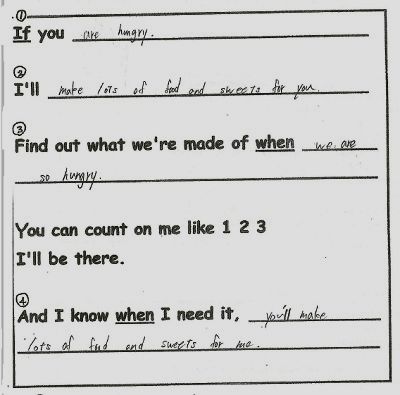 ①
If you are hungry.
②
I'll make lots of food and sweets for you.
③
Find out what we're made of when we are
so hungry.
You can count on me like 1 2 3
I'll be there.
④
And I know when I need it, you'll make
lots of food and sweets for me.